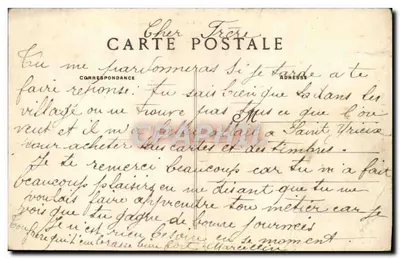 Cher Frère
CARTE POSTALE
CORRESPONDANCE
ADRESSE
Tu me pardonneras si je tarde a te
faire reponse. Tu sais bien que dans les
village on ne trouve pas tous ce que l'on
veut et il a Saint Yrieix
pour acheter des cartes et des timbres.
Je te remerci beaucoup car tu m'a fait
beaucoup plaisirs en me disant que tu me
voulais faire apprendre ton métier car je
vois que tu gagne de bonne journees
Je n'est rien besoin en se moment.
frère qui t'embrasse bien fort Marcellin